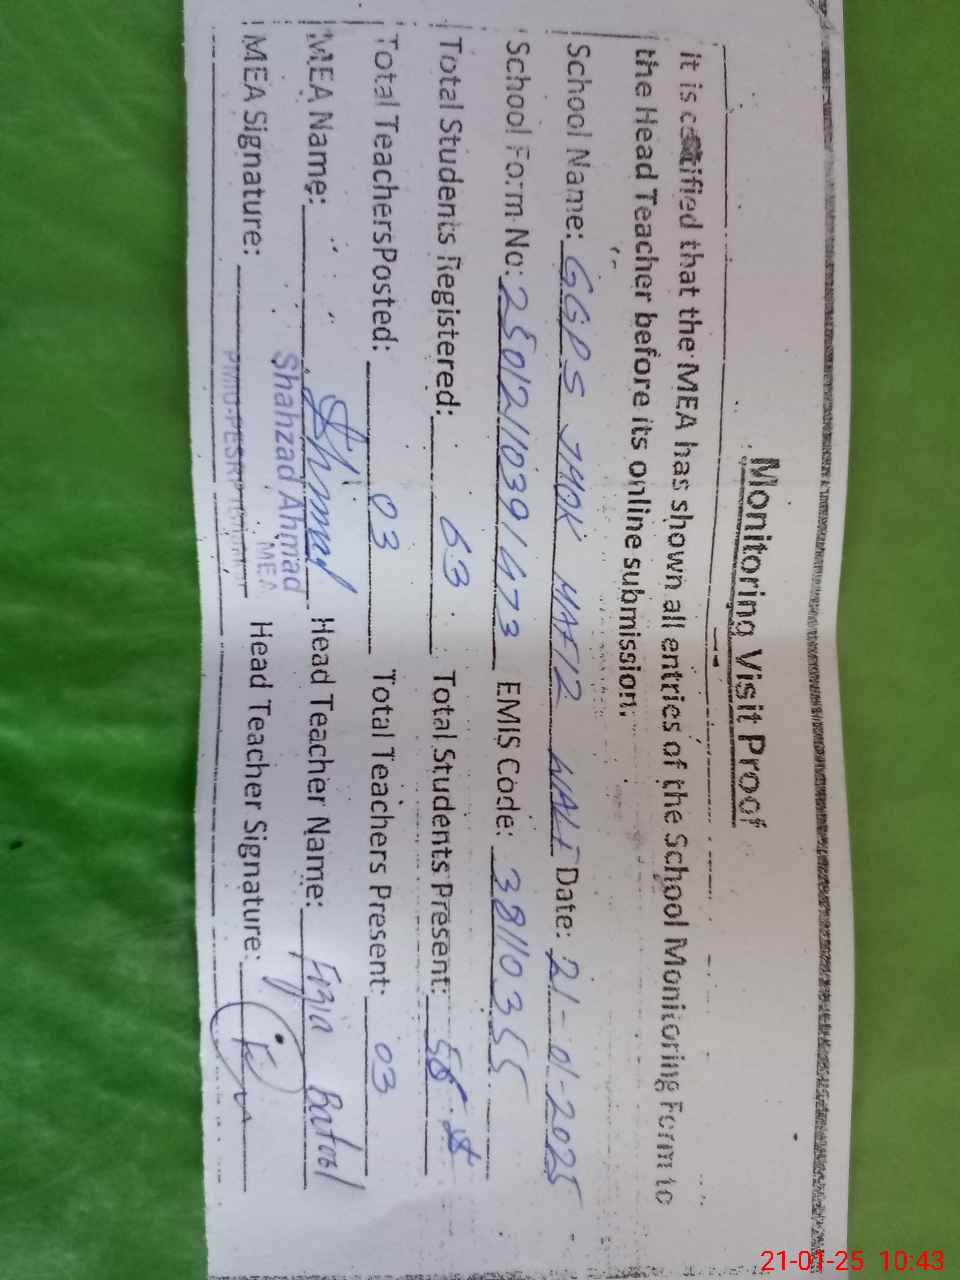 Monitoring Visit Proof
it is certified that the MEA has shown all entries of the School Monitoring Form to
the Head Teacher before its online submission.
School Name: GGPS JHOK HAFIZ WALI Date: 21-01-2025
School Form No: 25012110391473 EMIS Code: 38110355
Total Students Registered: 63 Total Students Present: 58
Total TeachersPosted: 03 Total Teachers Present: 03
MEA Name: Ahmad Head Teacher Name: Fizia Batool
Shahzad Ahmad
MEA
MEA Signature: Head Teacher Signature:
21-01-25 10:43